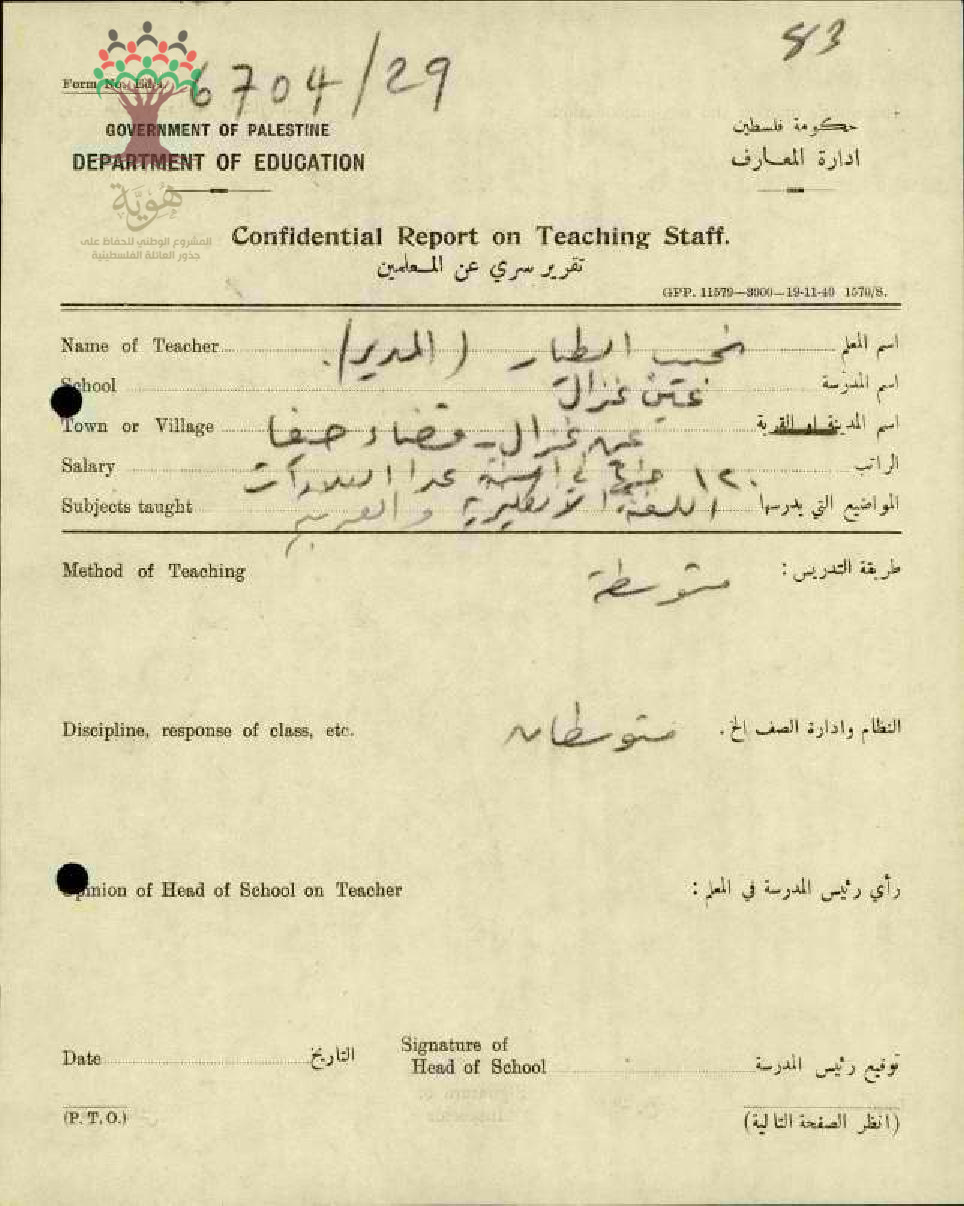 83
6704/29
Form No. Ed/4
GOVERNMENT OF PALESTINE
حكومة فلسطين
DEPARTMENT OF EDUCATION
ادارة المعارف
هُوِيَّة
المشروع الوطني للحفاظ على
جذور العائلة الفلسطينية
Confidential Report on Teaching Staff.
تقرير سري عن المعلمين
GPP. 11579—3900—19-11-40 1570/S.
Name of Teacher نجيب الطبار (المدير). اسم المعلم
School عين غزال اسم المدرسة
Town or Village عين غزال - قضاء حيفا اسم المدينة او القرية
Salary ١٢٠ في السنة عدا العلاوات الراتب
Subjects taught اللغة الانكليزية والعربية المواضيع التي يدرسها
Method of Teaching متوسطة طريقة التدريس :
Discipline, response of class, etc. متوسطان النظام وادارة الصف الخ .
Opinion of Head of School on Teacher رأي رئيس المدرسة في المعلم :
Date التاريخ Signature of Head of School توقيع رئيس المدرسة
(P. T. O.) (انظر الصفحة التالية)